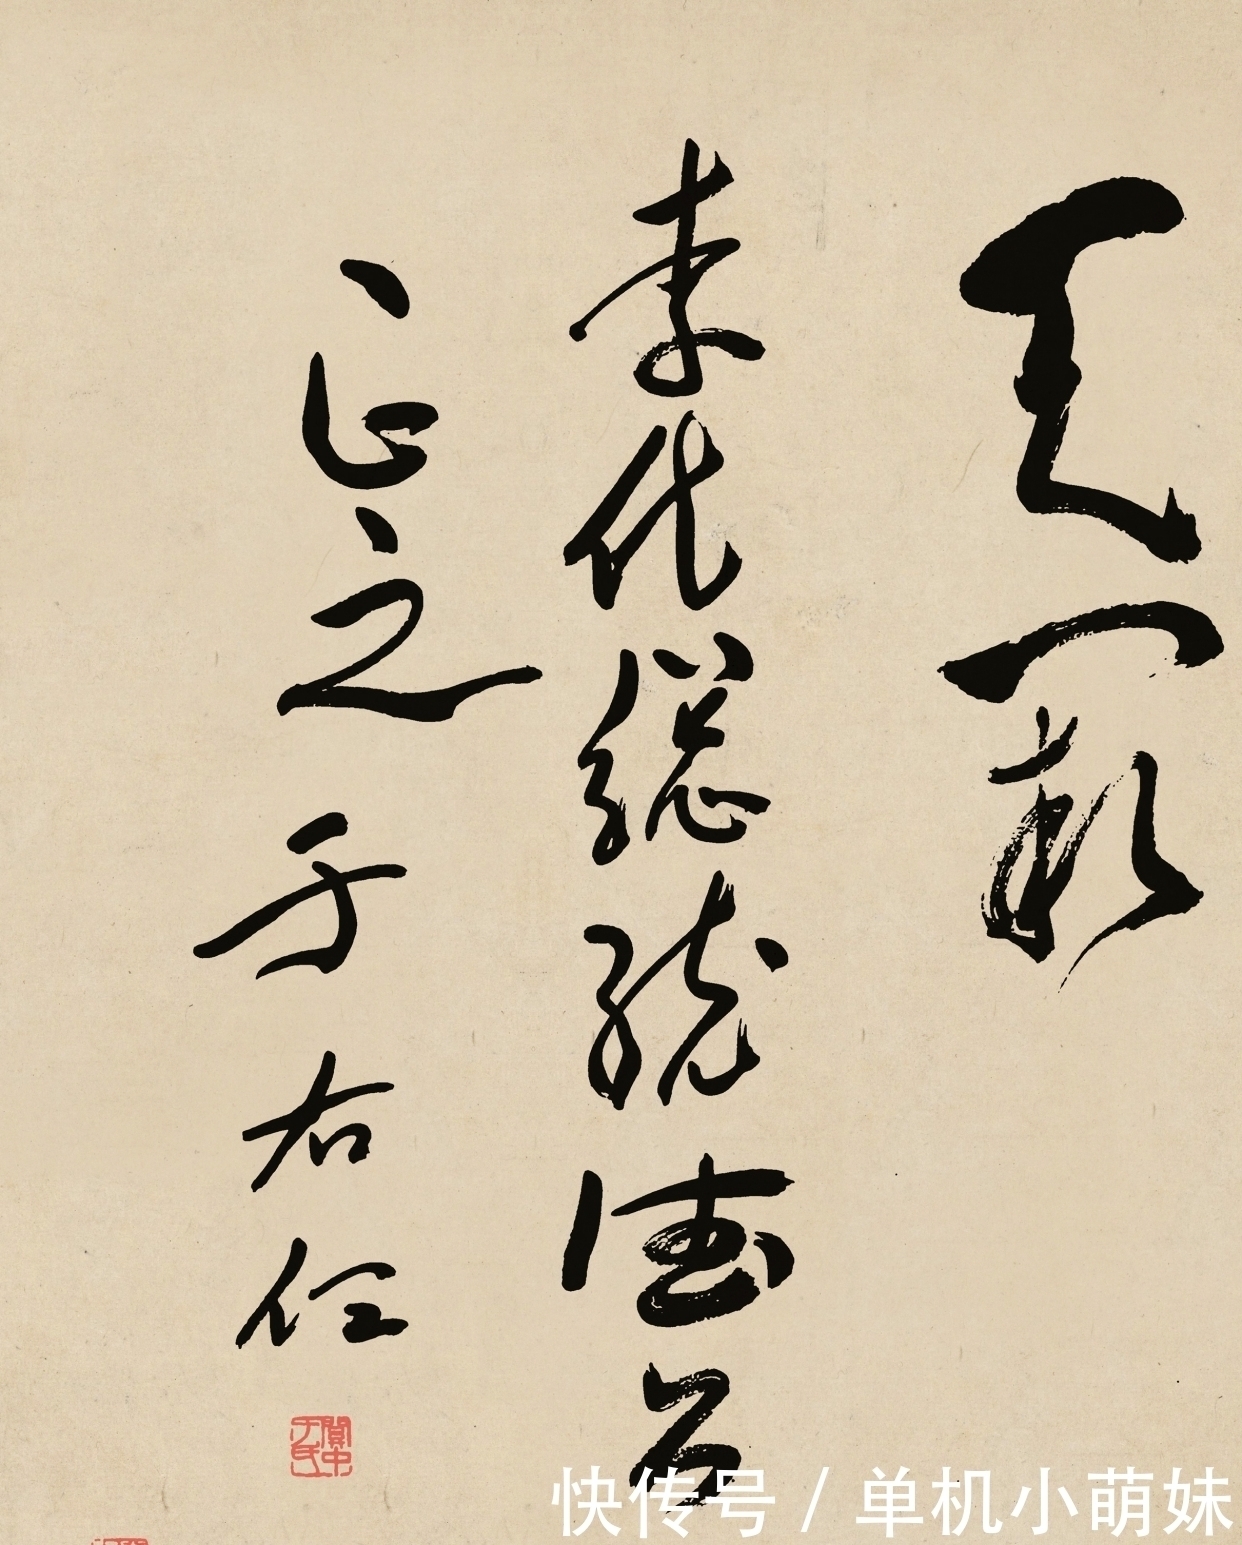 李代總統德公
正之 于右任
關中于氏
快传号 / 单机小萌妹